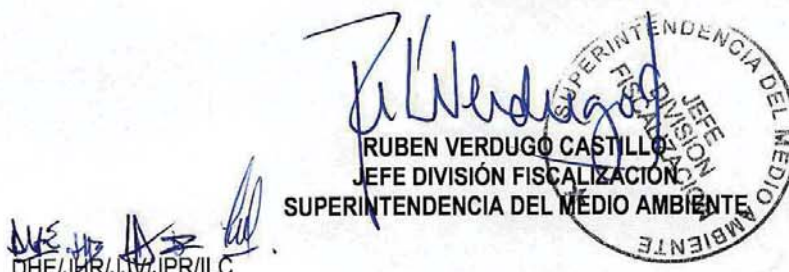 RUBEN VERDUGO CASTILLO
JEFE DIVISIÓN FISCALIZACIÓN
SUPERINTENDENCIA DEL MEDIO AMBIENTE
SUPERINTENDENCIA DEL MEDIO AMBIENTE
JEFE
DIVISION
FISCALIZACION
DHE/JHR/JJV/JPR/ILC